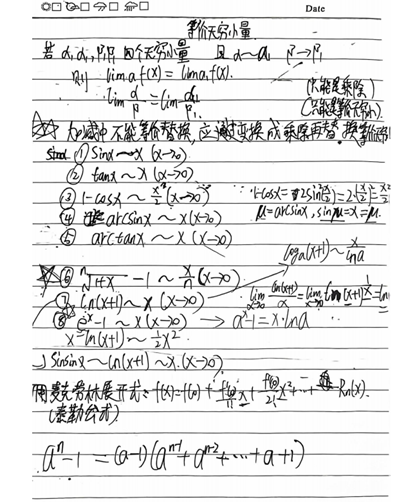 Date
等价无穷小量
若 α, α₁, β, β₁ 四个无穷小量 且 α~α₁ β→β₁
则 lim α f(x) = lim α₁ f(x).
lim α/β = lim α₁/β₁
(只能是乘除)
(只能是等价无穷小)
加减中不能等价替换, 应通过变换成乘除再替换
① sinx ~ x (x→0)
② tanx ~ x (x→0)
③ 1-cosx ~ x²/2 (x→0) 1-cosx = 2sin²(x/2) = 2·(x/2)² = x²/2
④ arcsinx ~ x (x→0) μ = arcsinx, sinμ = x = μ.
⑤ arctanx ~ x (x→0)
logₐ(x+1) ~ x/lna
⑥ ⁿ√1+x - 1 ~ x/n (x→0)
⑦ ln(x+1) ~ x (x→0) lim x→0 ln(x+1)/x = lim x→0 ln(x+1)^(1/x) = ln
⑧ eˣ-1 ~ x (x→0) → aˣ-1 = x·lna
x-ln(x+1) ~ ½x²
sinsinx ~ ln(x+1) ~ x (x→0)
用麦克劳林展开式: f(x) = f(0) + f'(0)/1! x + f''(0)/2! x² + … + Rn(x).
(泰勒公式)
aⁿ-1 = (a-1)(aⁿ⁻¹+aⁿ⁻²+…+a+1)